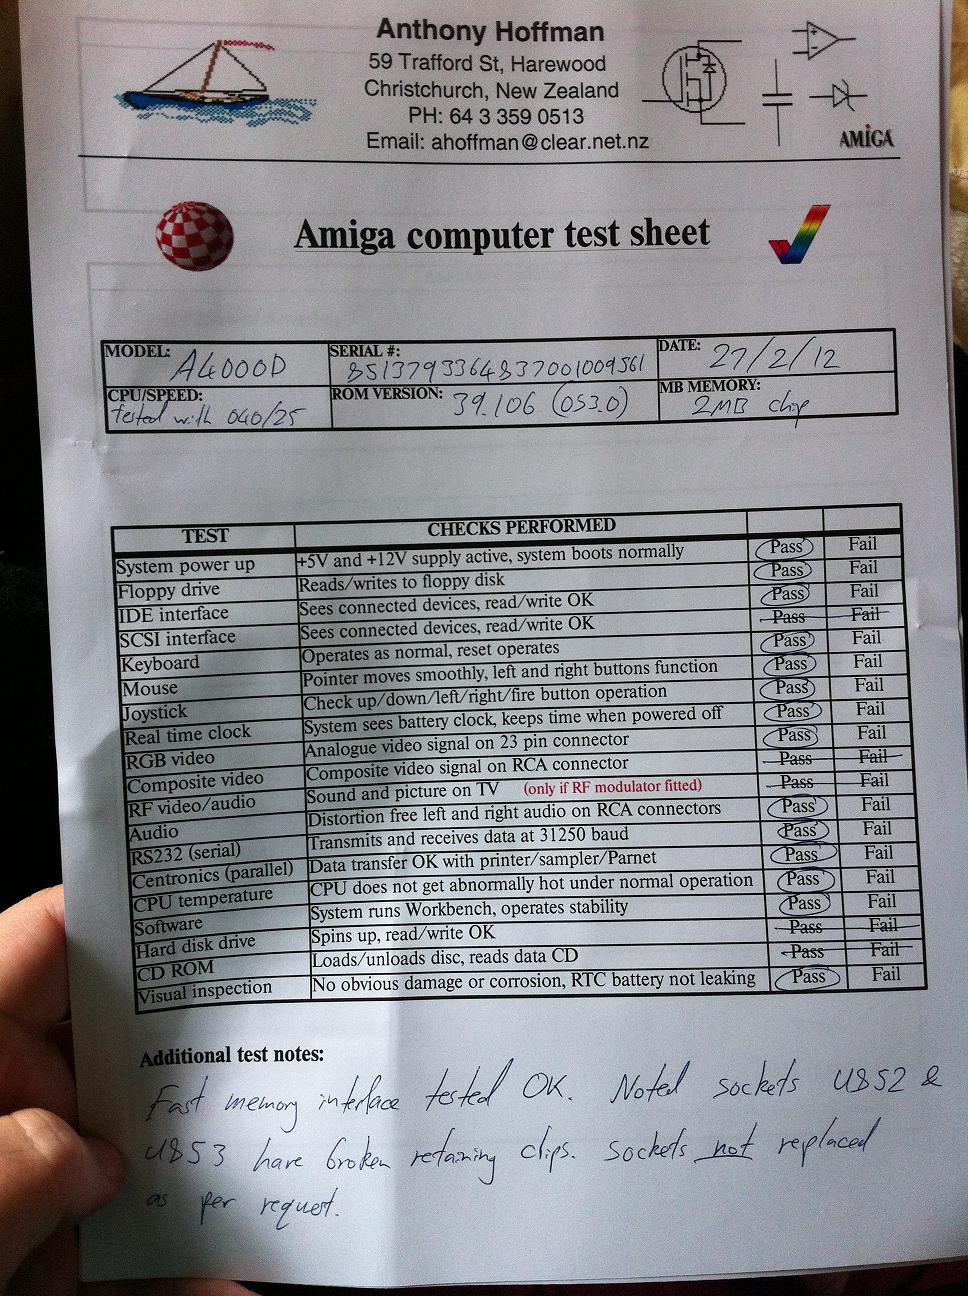 Anthony Hoffman
59 Trafford St, Harewood
Christchurch, New Zealand
PH: 64 3 359 0513
Email: ahoffman@clear.net.nz
AMIGA
Amiga computer test sheet
MODEL: A4000D SERIAL #: 8513793364837001009561 DATE: 27/2/12
CPU/SPEED: tested with 040/25 ROM VERSION: 39.106 (OS3.0) MB MEMORY: 2MB chip
TEST CHECKS PERFORMED
System power up +5V and +12V supply active, system boots normally Pass Fail
Floppy drive Reads/writes to floppy disk Pass Fail
IDE interface Sees connected devices, read/write OK Pass Fail
SCSI interface Sees connected devices, read/write OK Pass Fail
Keyboard Operates as normal, reset operates Pass Fail
Mouse Pointer moves smoothly, left and right buttons function Pass Fail
Joystick Check up/down/left/right/fire button operation Pass Fail
Real time clock System sees battery clock, keeps time when powered off Pass Fail
RGB video Analogue video signal on 23 pin connector Pass Fail
Composite video Composite video signal on RCA connector Pass Fail
RF video/audio Sound and picture on TV (only if RF modulator fitted) Pass Fail
Audio Distortion free left and right audio on RCA connectors Pass Fail
RS232 (serial) Transmits and receives data at 31250 baud Pass Fail
Centronics (parallel) Data transfer OK with printer/sampler/Parnet Pass Fail
CPU temperature CPU does not get abnormally hot under normal operation Pass Fail
Software System runs Workbench, operates stability Pass Fail
Hard disk drive Spins up, read/write OK Pass Fail
CD ROM Loads/unloads disc, reads data CD Pass Fail
Visual inspection No obvious damage or corrosion, RTC battery not leaking Pass Fail
Additional test notes:
Fast memory interface tested OK. Noted sockets U852 &
U853 have broken retaining clips. Sockets not replaced
as per request.